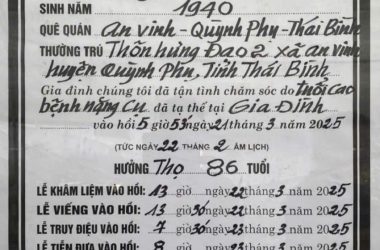 SINH NĂM 1940
QUÊ QUÁN An vinh - Quỳnh Phụ - Thái Bình
THƯỜNG TRÚ Thôn hưng Đạo 2 xã an vinh
huyện Quỳnh Phụ, Tỉnh Thái Bình
Gia đình chúng tôi đã tận tình chăm sóc do tuổi cao
bệnh nặng Cụ đã tạ thế tại Gia Đình
vào hồi 5 giờ 53' ngày 21 tháng 3 năm 2025
(TỨC NGÀY 22 THÁNG 2 ÂM LỊCH)
HƯỞNG Thọ 86 TUỔI
LỄ KHÂM LIỆM VÀO HỒI: 13 giờ ngày 22 tháng 3 năm 2025
LỄ VIẾNG VÀO HỒI: 13 giờ 30 ngày 22 tháng 3 năm 2025
LỄ TRUY ĐIỆU VÀO HỒI: 7 giờ 30 ngày 23 tháng 3 năm 2025
LỄ TIỄN ĐƯA VÀO HỒI: 8 giờ ngày 23 tháng 3 năm 2025